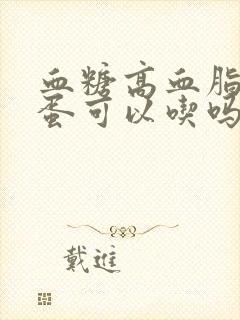 血糖高血脂
蛋可以喫吗
戴進